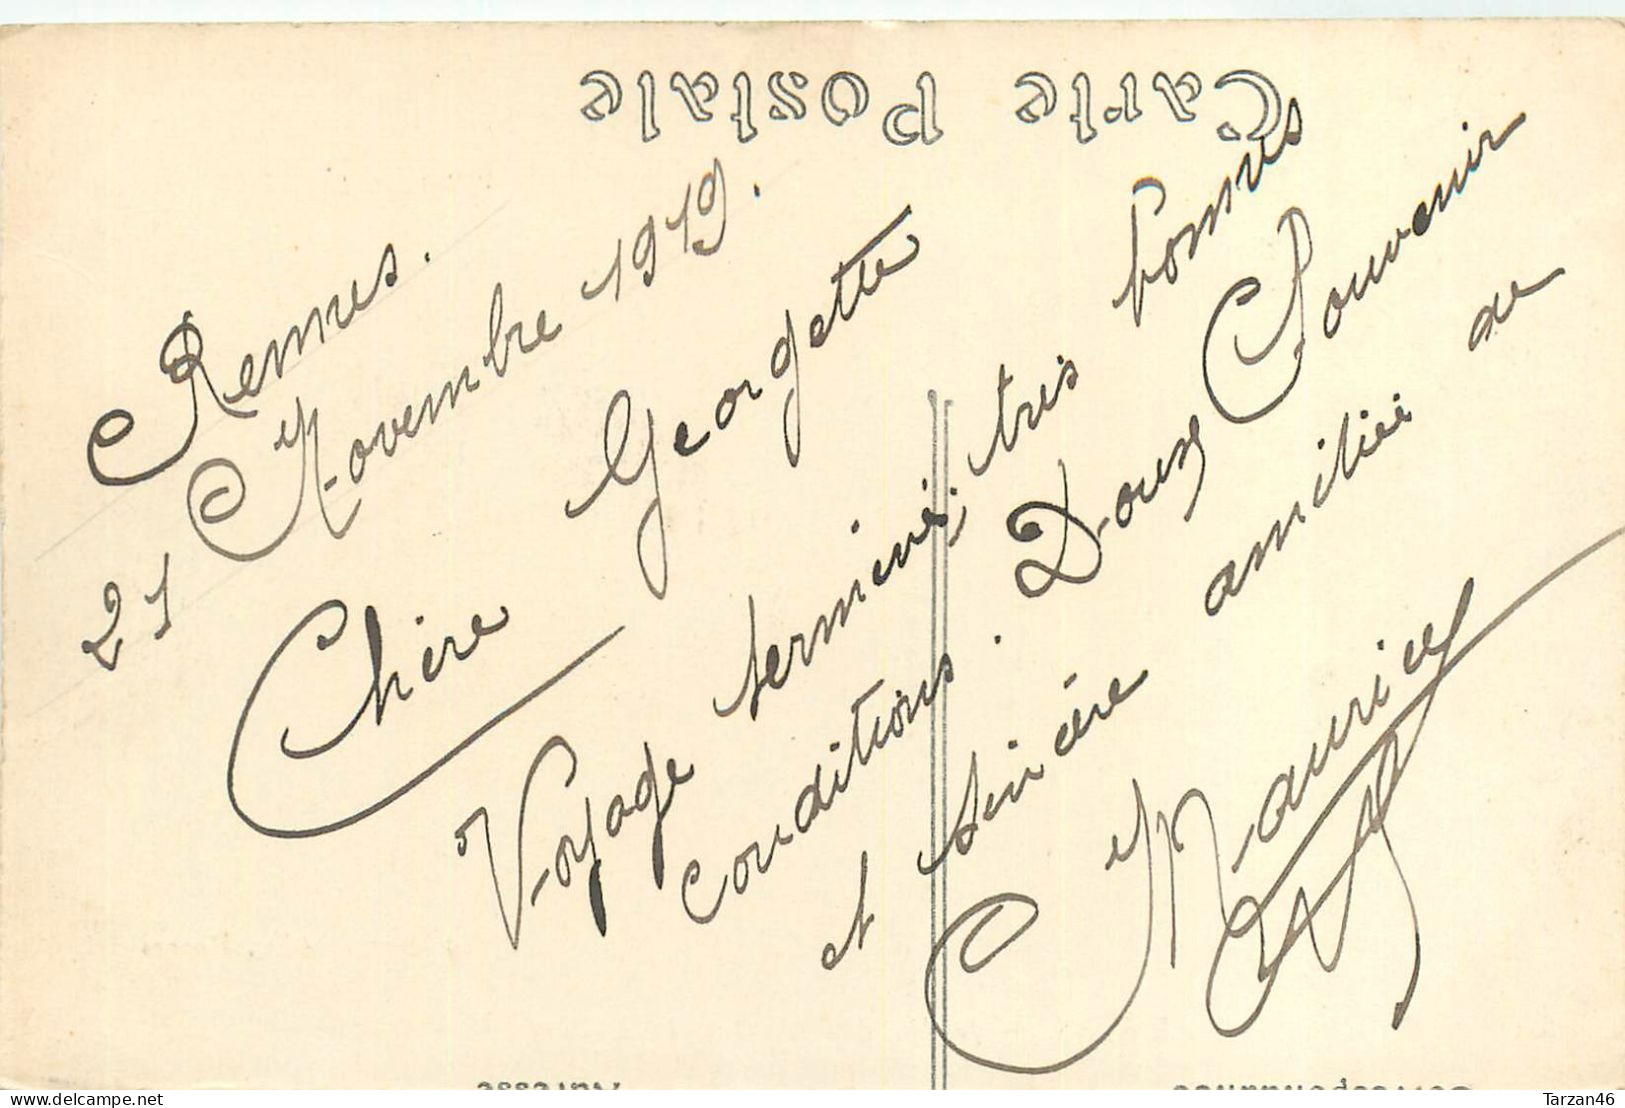 Carte Postale
Rennes.
21 Novembre 1919.
Chère Georgette
Voyage terminé, très bonnes
conditions. Doux Souvenir
et sincère amitiée de
Maurice
Correspondance
Adresse
delcampe.net
Tarzan46